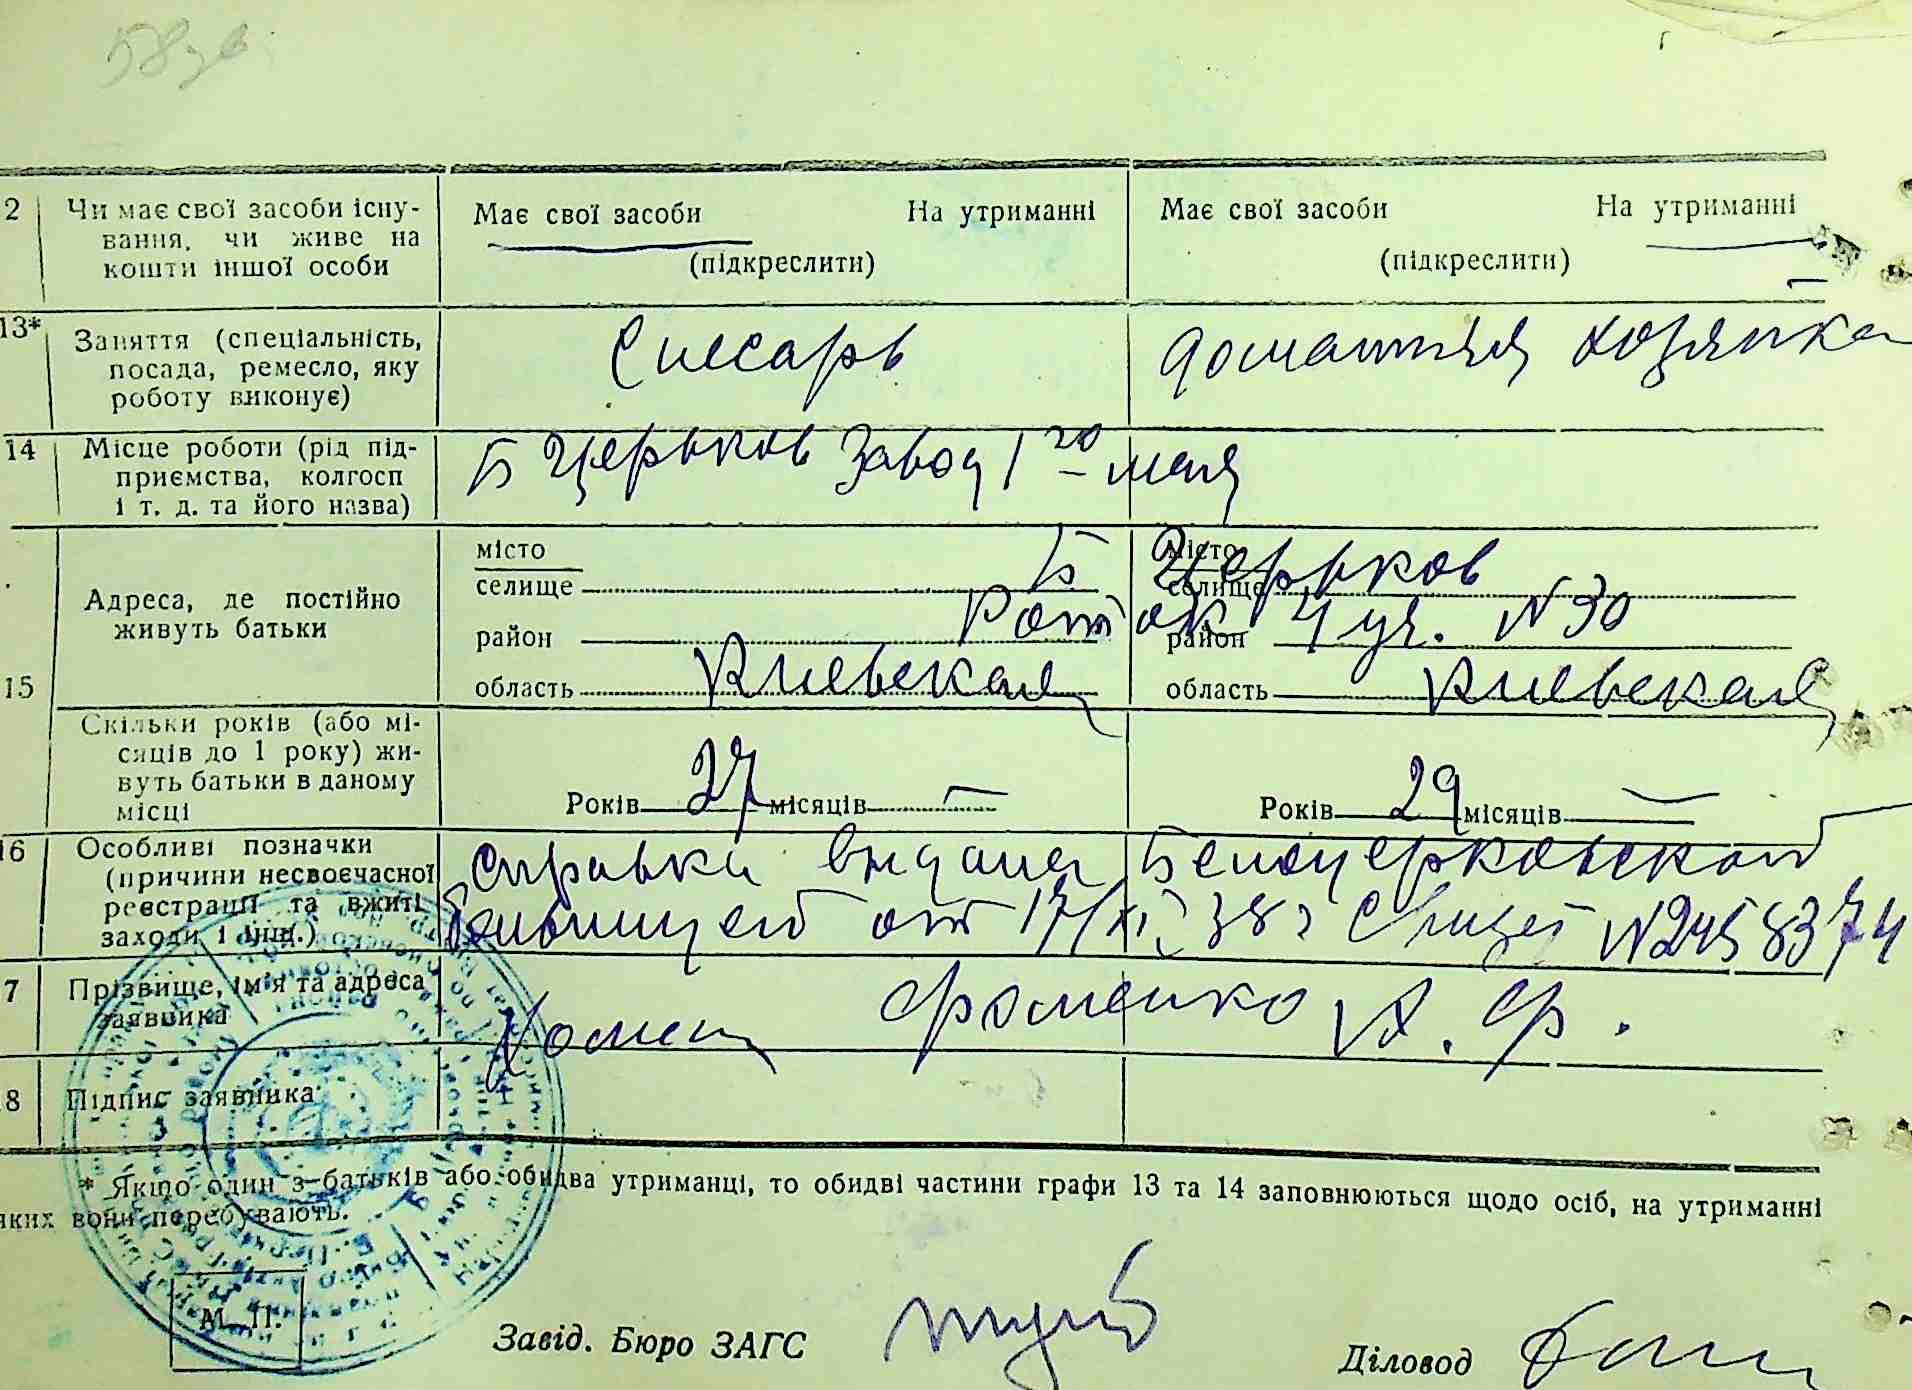 2 Чи має свої засоби існу- Має свої засоби На утриманні Має свої засоби На утриманні
вання, чи живе на
кошти іншої особи (підкреслити) (підкреслити)
13* Заняття (спеціальність, Слесарь домашняя хозяйка
посада, ремесло, яку
роботу виконує)
14 Місце роботи (рід під- Б Церьков Завод 1го мая
приємства, колгосп
і т. д. та його назва)
місто Б Церьков місто
селище селище
Адреса, де постійно Роток 4 уч. N 30
живуть батьки район район
15 область Киевская область Киевская
Скільки років (або мі-
сяців до 1 року) жи-
вуть батьки в даному Років 27 місяців — Років 29 місяців —
місці
16 Особливі позначки Справка выдана Белоцерковской
(причини несвоєчасної
реєстрації та вжиті Больницей от 17/XI 38 г N 2458374
заходи і інш.)
7 Прізвище, ім'я та адреса Фоменко А. Ф.
заявника
8 Підпис заявника
* Якщо один з батьків або обидва утриманці, то обидві частини графи 13 та 14 заповнюються щодо осіб, на утриманні
яких вони перебувають.
М. П.
Завід. Бюро ЗАГС Діловод